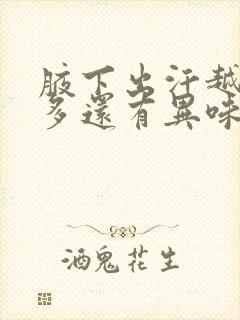 腋下出汗越
多還有異味
酒鬼花生